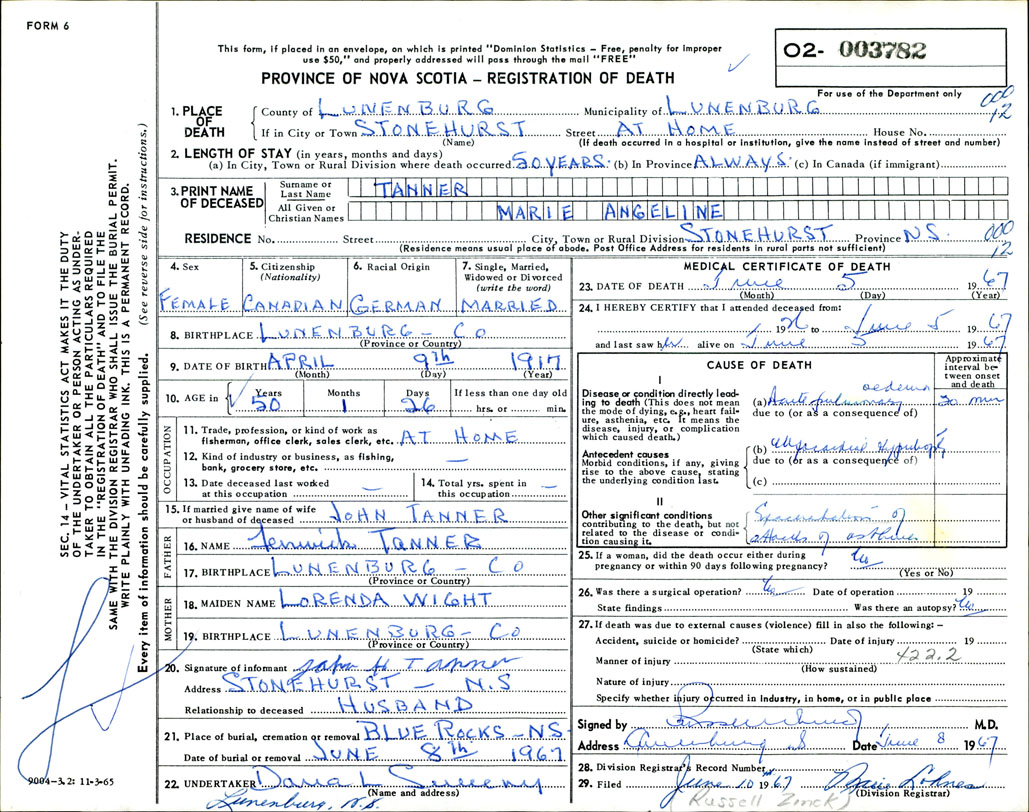 FORM 6
This form, if placed in an envelope, on which is printed "Dominion Statistics – Free, penalty for improper
use $50," and properly addressed will pass through the mail "FREE"
O2- 003782
PROVINCE OF NOVA SCOTIA – REGISTRATION OF DEATH
For use of the Department only
000
12
1. PLACE OF DEATH
County of LUNENBURG Municipality of LUNENBURG
If in City or Town STONEHURST Street AT HOME House No.
(Name) (If death occurred in a hospital or institution, give the name instead of street and number)
2. LENGTH OF STAY (in years, months and days)
(a) In City, Town or Rural Division where death occurred 50 YEARS. (b) In Province ALWAYS. (c) In Canada (if immigrant)
3. PRINT NAME OF DECEASED
Surname or Last Name TANNER
All Given or Christian Names MARIE ANGELINE
RESIDENCE No. Street City, Town or Rural Division STONEHURST Province N.S.
(Residence means usual place of abode. Post Office Address for residents in rural parts not sufficient)
000
12
4. Sex FEMALE
5. Citizenship (Nationality) CANADIAN
6. Racial Origin GERMAN
7. Single, Married, Widowed or Divorced (write the word) MARRIED
8. BIRTHPLACE LUNENBURG – CO
(Province or Country)
9. DATE OF BIRTH APRIL 9th 1917
(Month) (Day) (Year)
10. AGE in Years 50 Months 1 Days 26 If less than one day old hrs. or min.
OCCUPATION
11. Trade, profession, or kind of work as fisherman, office clerk, sales clerk, etc. AT HOME
12. Kind of industry or business, as fishing, bank, grocery store, etc. —
13. Date deceased last worked at this occupation —
14. Total yrs. spent in this occupation —
15. If married give name of wife or husband of deceased JOHN TANNER
FATHER
16. NAME Fenwick TANNER
17. BIRTHPLACE LUNENBURG – CO
(Province or Country)
MOTHER
18. MAIDEN NAME LORENDA WIGHT
19. BIRTHPLACE LUNENBURG – CO
(Province or Country)
20. Signature of informant John H Tanner
Address STONEHURST – N.S
Relationship to deceased HUSBAND
21. Place of burial, cremation or removal BLUE ROCKS – NS.
Date of burial or removal JUNE 8th 1967
22. UNDERTAKER Dana L Sweeny
(Name and address)
Lunenburg, N.S.
MEDICAL CERTIFICATE OF DEATH
23. DATE OF DEATH June 5 1967
(Month) (Day) (Year)
24. I HEREBY CERTIFY that I attended deceased from:
19 to June 5 1967
and last saw her alive on June 5 1967
CAUSE OF DEATH
Approximate interval between onset and death
I
Disease or condition directly leading to death (This does not mean the mode of dying, e.g., heart failure, asthenia, etc. It means the disease, injury, or complication which caused death.)
(a) Acute pulmonary oedema 20 min
due to (or as a consequence of)
Antecedent causes
Morbid conditions, if any, giving rise to the above cause, stating the underlying condition last.
(b) Hypertrophy
due to (or as a consequence of)
(c)
II
Other significant conditions contributing to the death, but not related to the disease or condition causing it.
of
attacks of asthma
25. If a woman, did the death occur either during pregnancy or within 90 days following pregnancy?
(Yes or No)
26. Was there a surgical operation? Date of operation 19
State findings Was there an autopsy?
27. If death was due to external causes (violence) fill in also the following: –
Accident, suicide or homicide? Date of injury 19
(State which) 422.2
Manner of injury
(How sustained)
Nature of injury
Specify whether injury occurred in Industry, in home, or in public place
Signed by M.D.
Address Lunenburg Date June 8 1967
28. Division Registrar's Record Number
29. Filed June 10 1967
(Division Registrar)
Russell Zinck
SEC. 14 – VITAL STATISTICS ACT MAKES IT THE DUTY
OF THE UNDERTAKER OR PERSON ACTING AS UNDER-
TAKER TO OBTAIN ALL THE PARTICULARS REQUIRED
IN THE "REGISTRATION OF DEATH" AND TO FILE THE
SAME WITH THE DIVISION REGISTRAR WHO SHALL ISSUE THE BURIAL PERMIT.
WRITE PLAINLY WITH UNFADING INK. THIS IS A PERMANENT RECORD.
Every item of information should be carefully supplied. (See reverse side for instructions.)
9004-3.2: 11-3-65